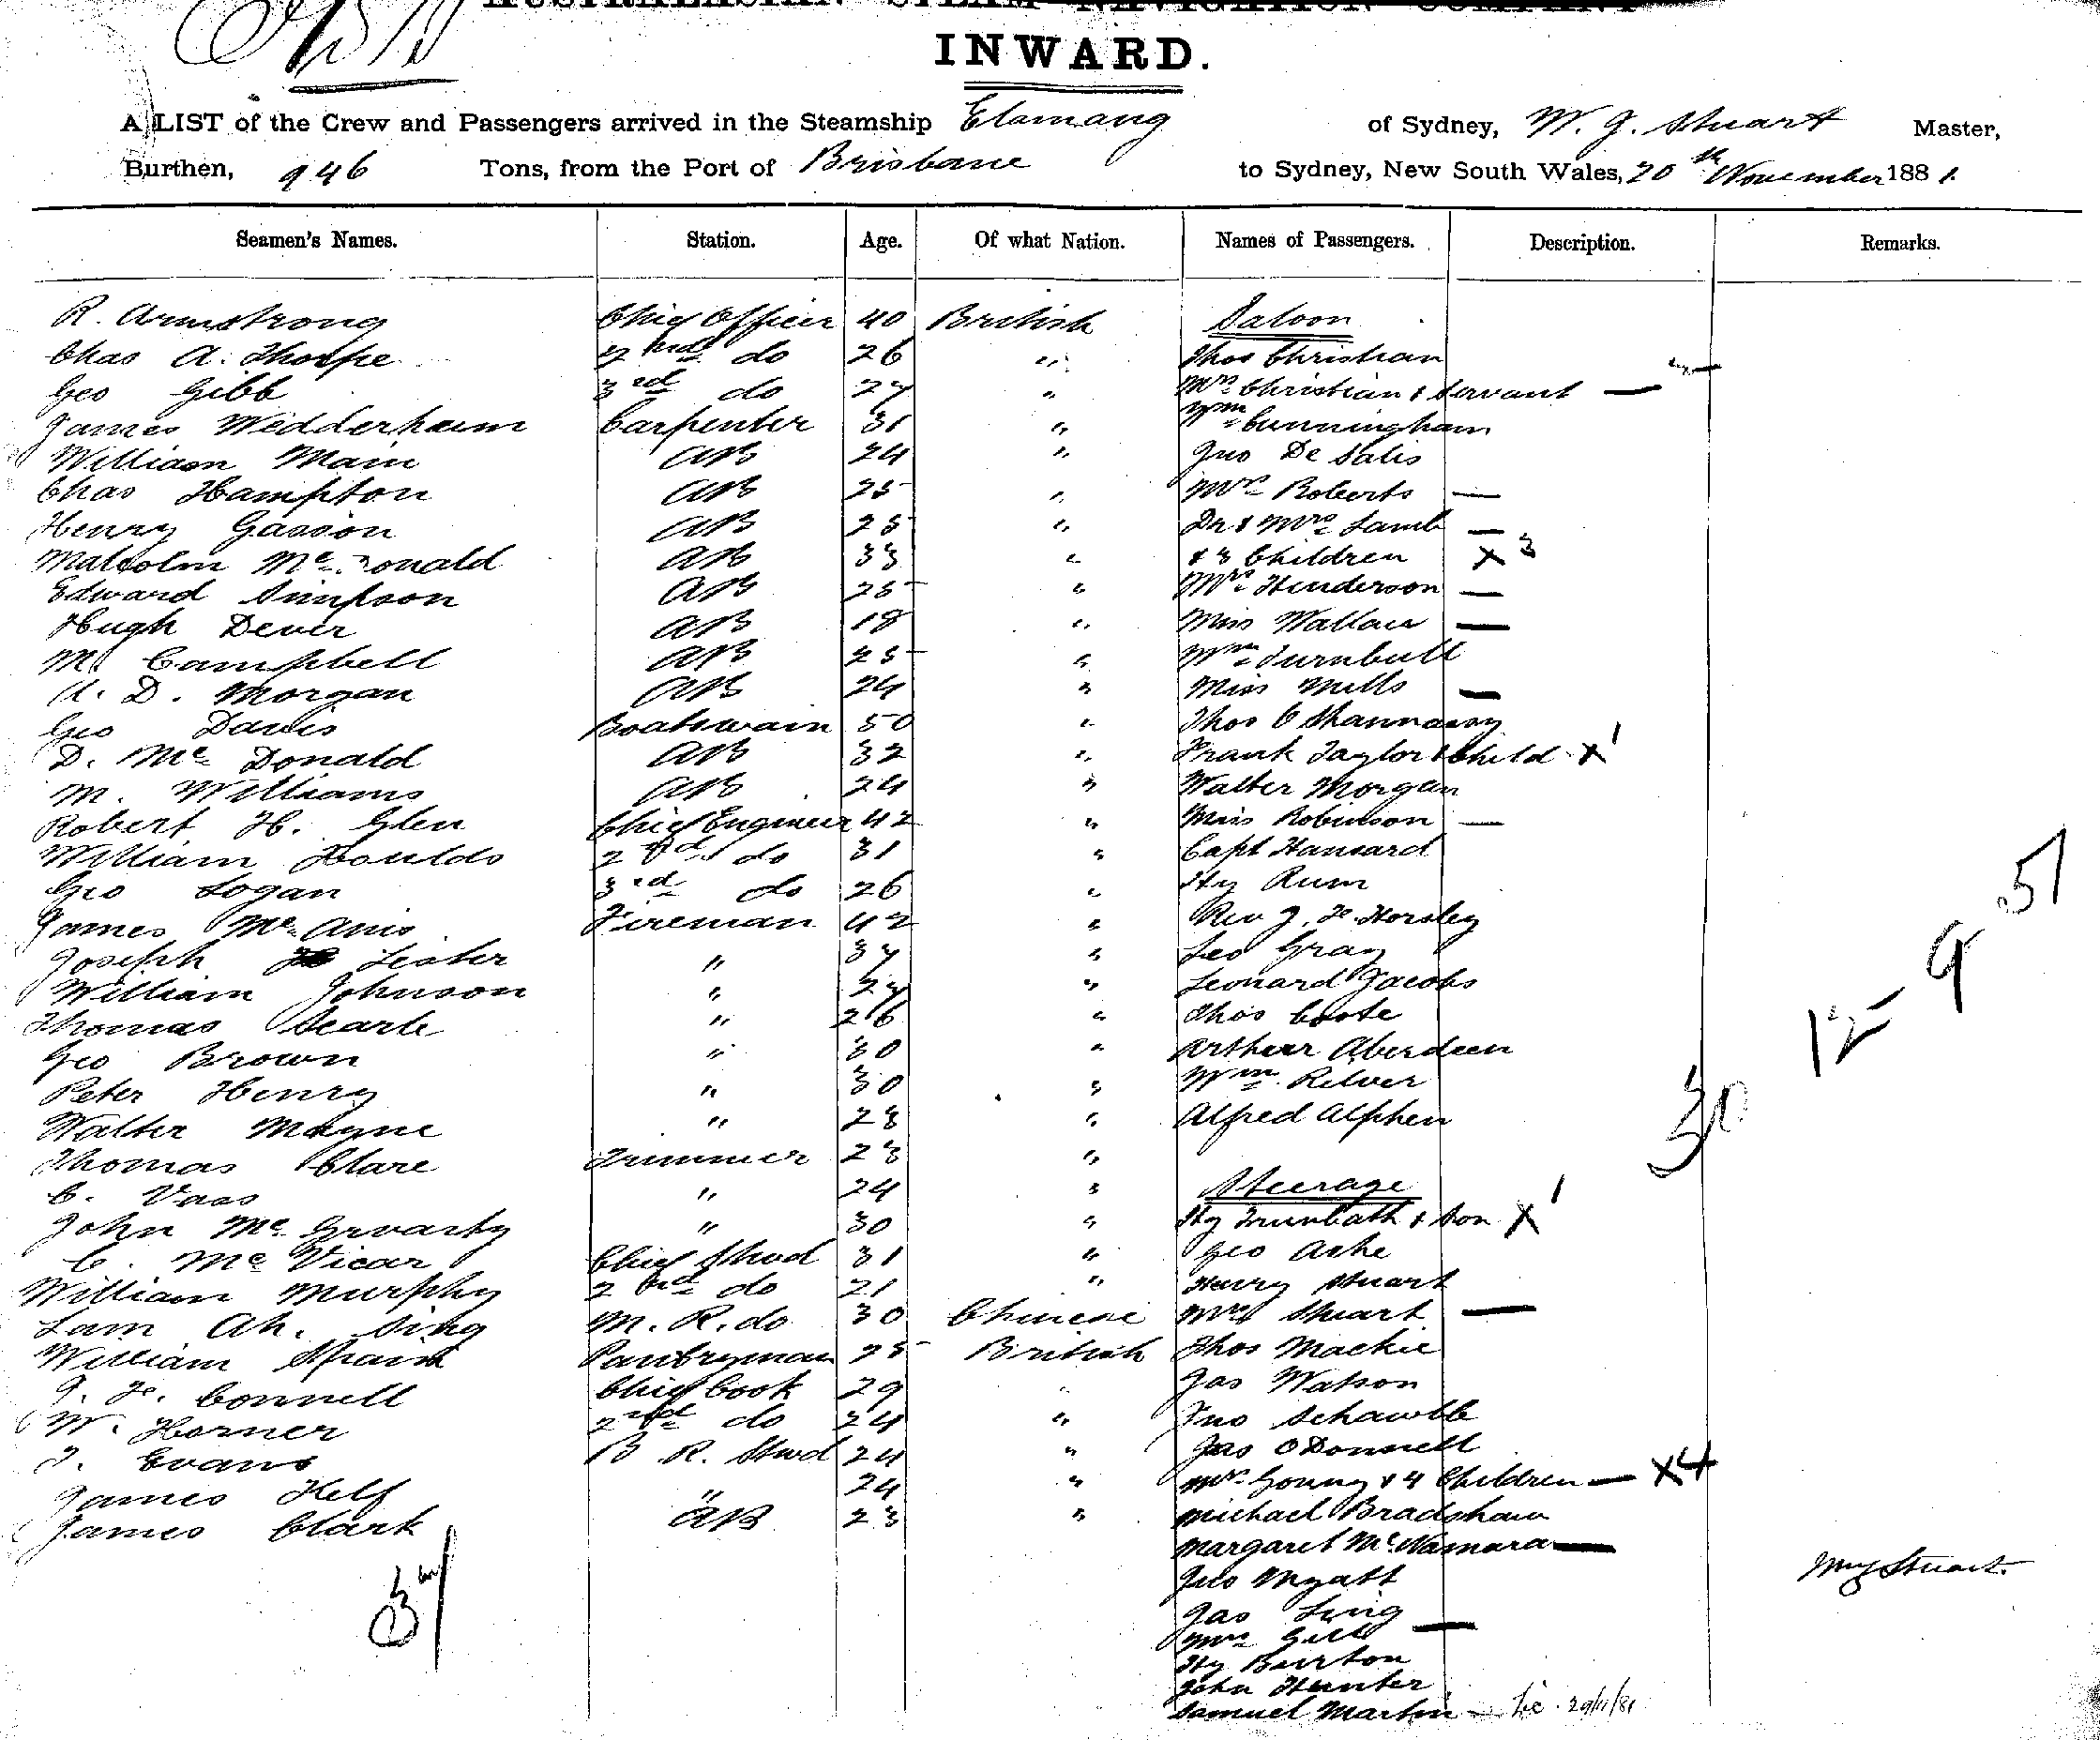 AUSTRALASIAN STEAM NAVIGATION COMPANY
INWARD.
A LIST of the Crew and Passengers arrived in the Steamship Elamang of Sydney, W. G. Stuart Master,
Burthen, 946 Tons, from the Port of Brisbane to Sydney, New South Wales, 20th November 1881.
Seamen's Names. Station. Age. Of what Nation. Names of Passengers. Description. Remarks.
R. Armstrong Chief Officer 40 British Saloon
Chas A. Thorpe 2nd do 26 " Thos Christian
Geo Gibb 3rd do 27 " Mrs Christian & Servant —
James Wedderhaum Carpenter 31 " Wm Cunningham
William Main AB 24 " Jno De Salis
Chas Hampton AB 25 " Mrs Roberts —
Henry Gasson AB 25 " Dr & Mrs Lamb —
Malcolm Mc Donald AB 33 " & 3 Children X 3
Edward Simpson AB 25 " Mrs Henderson —
Hugh Dever AB 18 " Miss Wallace —
M. Campbell AB 25 " Wm Turnbull
A. D. Morgan AB 24 " Miss Mills —
Geo Davis Boatswain 50 " Thos O Shannassy
D. Mc Donald AB 32 " Frank Taylor & Child X 1
M. Williams AB 24 " Walter Morgan
Robert H. Glen Chief Engineer 42 " Miss Robinson —
William Foulds 2nd do 31 " Capt Hansard
Geo Logan 3rd do 26 " Hy Rum
James Mc Anis Fireman 42 " Rev J. F. Horsley
Joseph Lester " 37 " Leo Gray
William Johnson " 27 " Leonard Jacobs
Thomas Searle " 26 " Thos Coote
Geo Brown " 30 " Arthur Aberdeen
Peter Henry " 30 " Wm Relver
Walter Mayne " 28 " Alfred Alphen
Thomas Clare Trimmer 23 "
C. Vass " 24 " Steerage
John Mc " 30 " Hy Trumbath & Son X 1
C. Mc Vicar Chief Stwd 31 " Geo Ashe
William Murphy 2nd do 21 " Harry Stuart
Lam Ah. Sing M. R. do 30 Chinese Mrs Stuart —
William Spain Pantryman 25 British Thos Mackie
J. F. Connell Chief Cook 29 " Jas Watson
W. Horner 2nd do 24 " Jno
J. Evans B. R. Stwd 24 " Jas O Donnell
James Kelf " 24 " Mrs Young & 4 Children — X 4
James Clark AB 23 " Michael Bradshaw
Margaret Mc Namara —
Geo Myatt
Jas Ling
Mrs Gill —
Hy Burton
John Hunter
Samuel Martin — 29/11/81
30 12 - 9 51
Wm G Stuart.